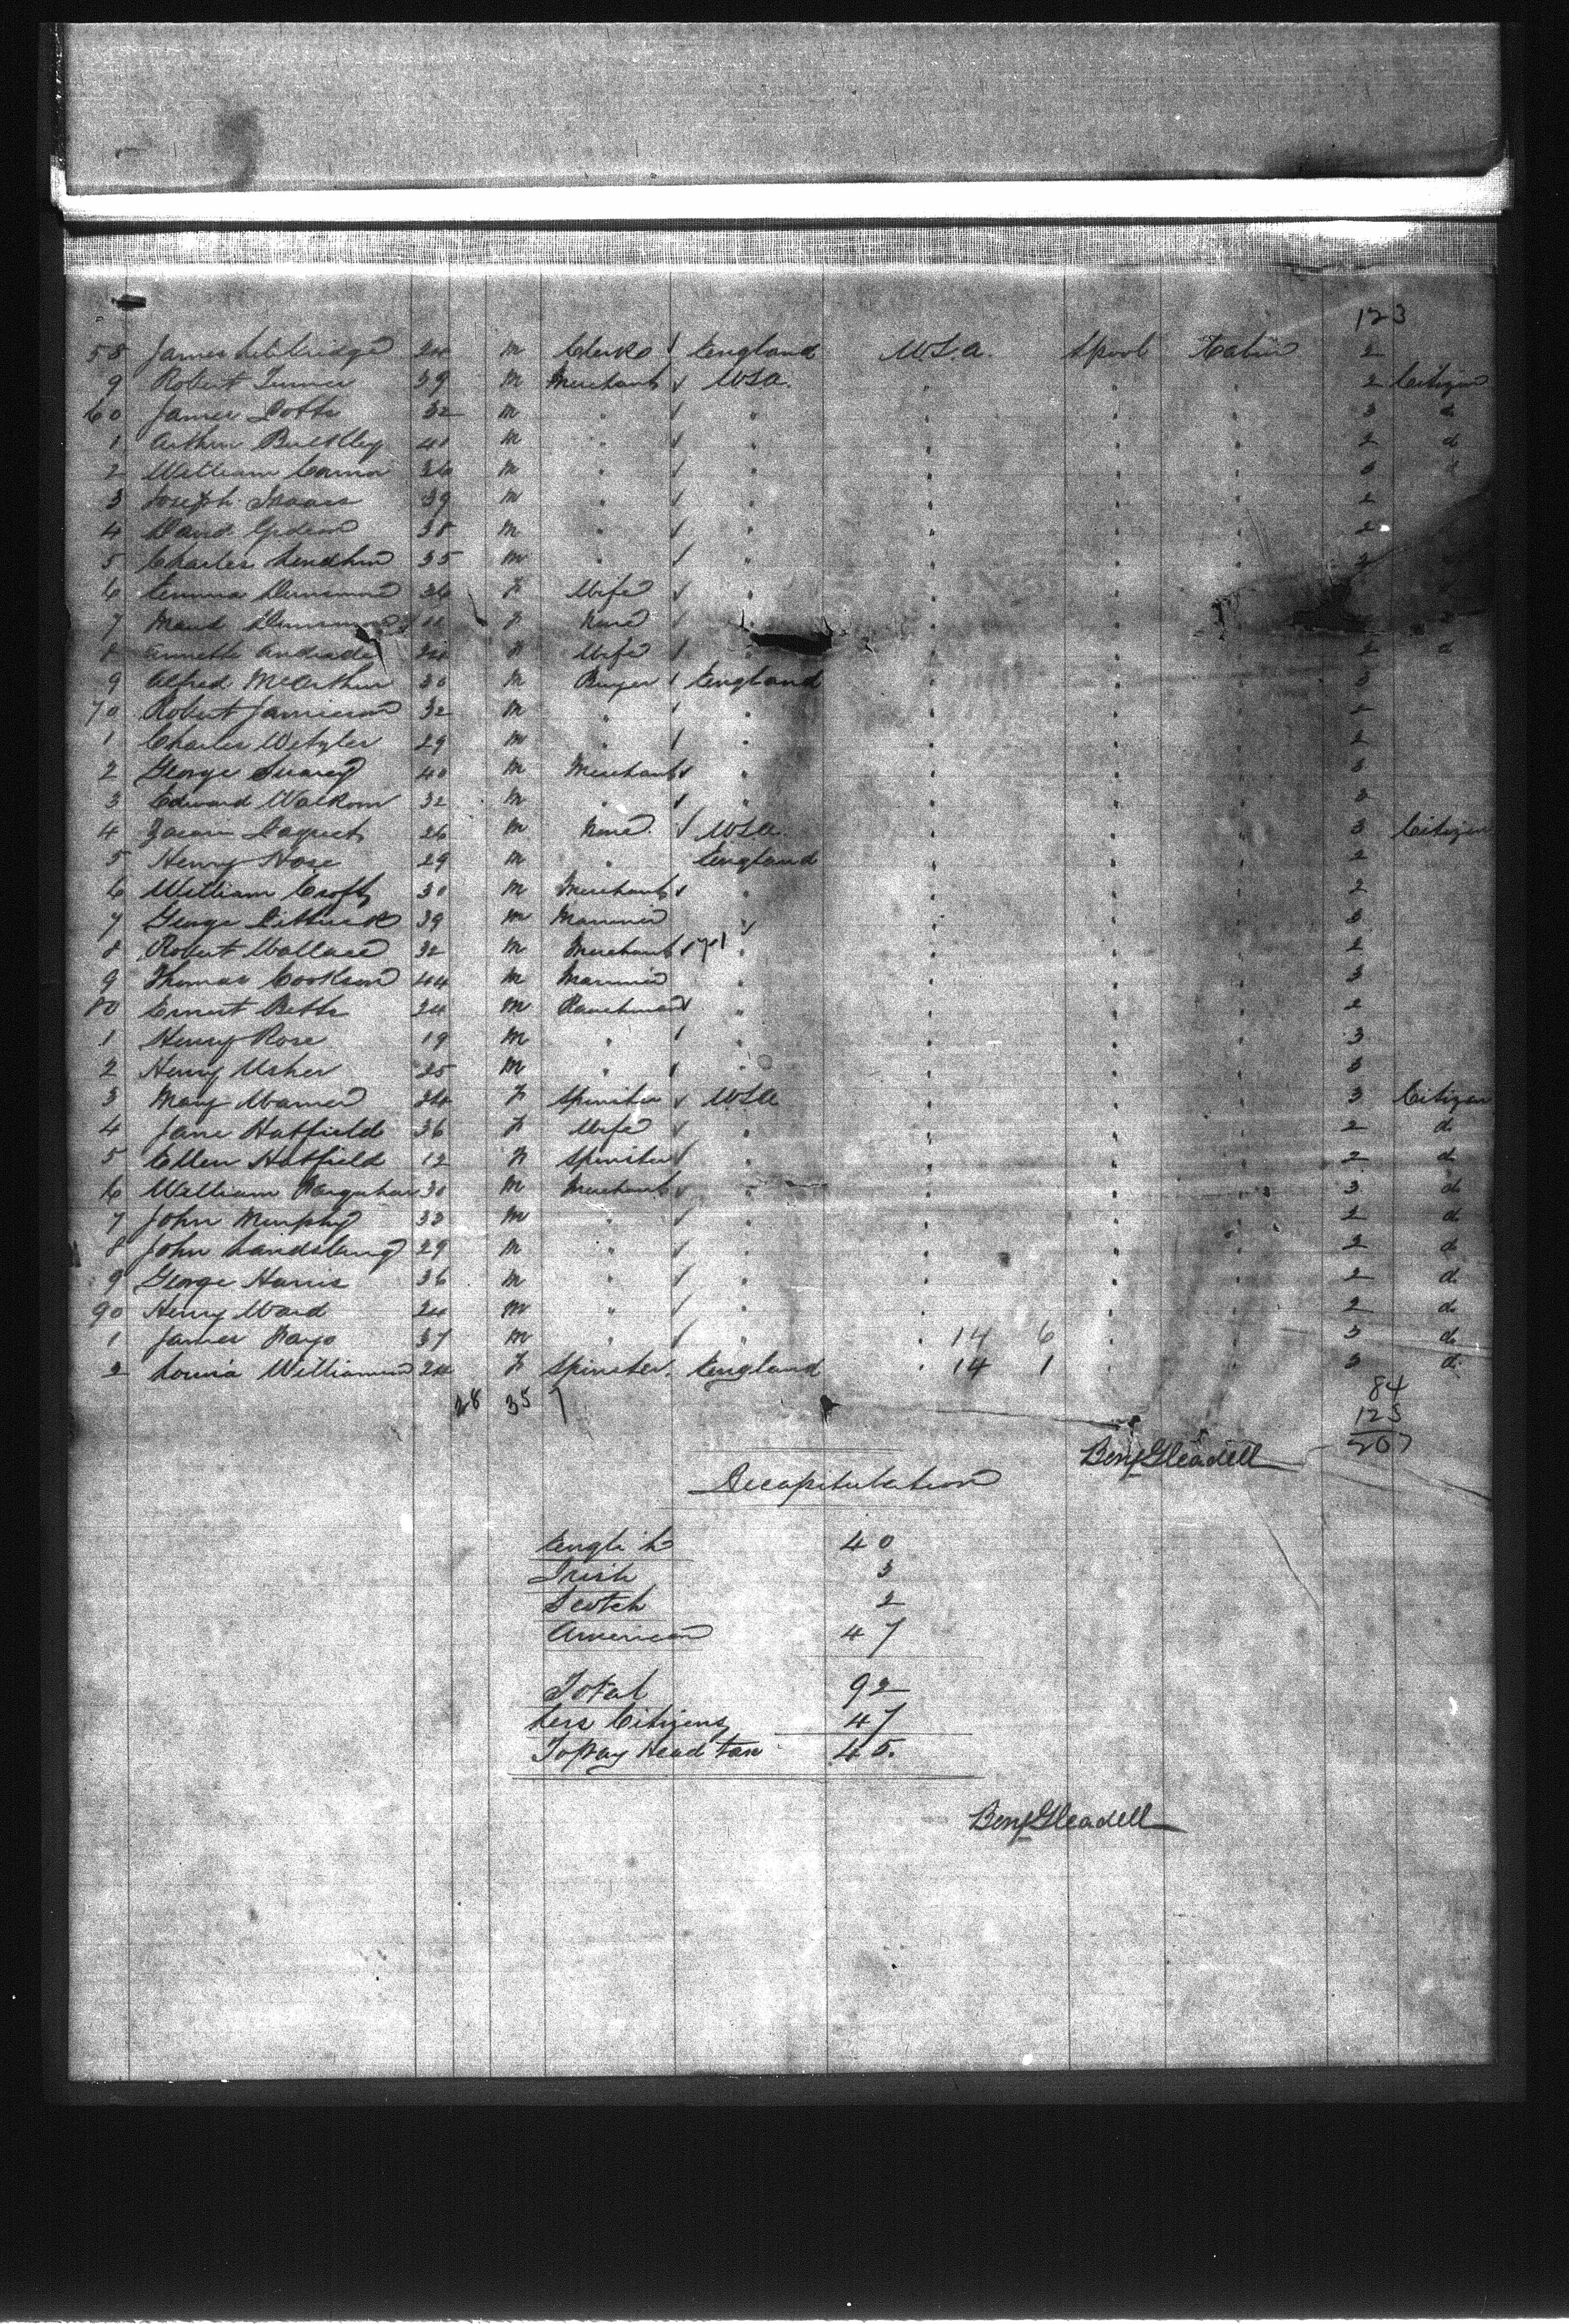 123
58 James 24 m Clerk England U.S.A. Lpool Cabin 2
9 Robert Turner 39 m Merchant U.S.A. " " " 2 Citizen
60 James Potts 32 m " " " " " 3 d
1 Arthur Bulkley 41 m " " " " " 2 d
2 William 36 m " " " " " d
3 Joseph Isaacs 39 m " " " " " 2
4 David Gideon 38 m " " " " " 2
5 Charles 35 m " " " " " 2
6 Emma Dunsmore 36 F Wife " " " "
7 Maud Dunsmore 11 F None " " "
8 Annette Andrade 24 F Wife " " " " 2 d
9 Alfred McArthur 30 m Buyer England " " " 3
70 Robert Jamieson 32 m " " " " " 2
1 Charles Wetzler 29 m " " " " " 2
2 George 40 m Merchant " " " " 3
3 Edward Walkom 32 m " " " " " 3
4 Paquet 26 m None U.S.A. " " " 3 Citizen
5 Henry Hose 29 m " England " " " 2
6 William Croft 30 m Merchant " " " " 2
7 George 39 m Mariner " " " " 3
8 Robert Wallace 32 m Merchant " " " " 2
9 Thomas Cookson 44 m Mariner " " " " 3
80 Ernest Betts 24 m Ranchman " " " " 2
1 Henry Rose 19 m " " " " " 3
2 Henry Usher 25 m " " " " " 3
3 Mary Warner 24 F Spinster U.S.A " " " 3 Citizen
4 Jane Hatfield 36 F Wife " " " " 2 d
5 Ellen Hatfield 12 F Spinster " " " " 2 d
6 William Farquhar 30 m Merchant " " " " 3 d
7 John Murphy 33 m " " " " " 2 d
8 John 29 m " " " " " 2 d
9 George Harris 36 m " " " " " 2 d
90 Henry Ward 24 m " " " " " 2 d
1 James Mayo 37 m " " 14 6 " " 3 d
2 Louisa Williamson 24 F Spinster England 14 1 " " 3 d
28 35 7
84
123
207
Benj Gleadell
Recapitulation
English 40
Irish 3
Scotch 2
American 47
Total 92
Less Citizens 47
To pay Head tax 45.
Benj Gleadell